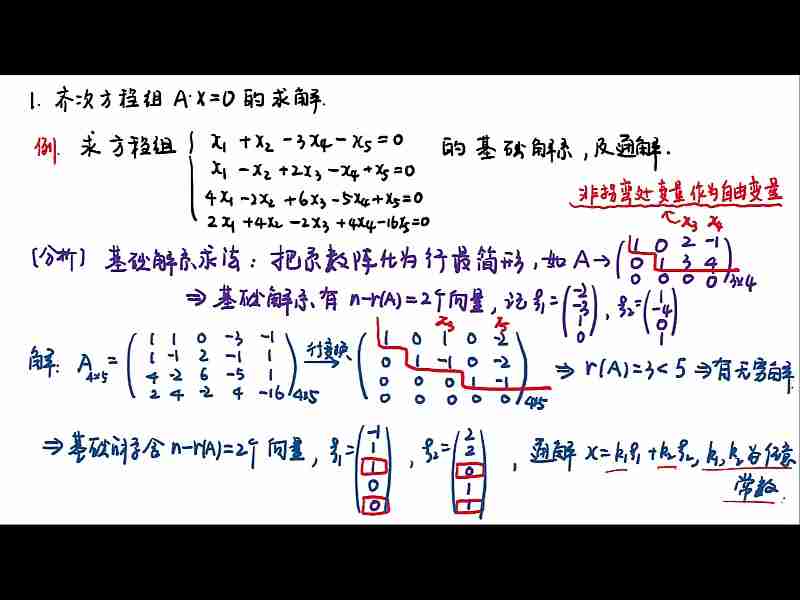 1. 齐次方程组 A·X=0 的求解.
例. 求方程组 { x₁+x₂-3x₄-x₅=0 的基础解系,及通解.
x₁-x₂+2x₃-x₄+x₅=0
4x₁-2x₂+6x₃-5x₄+x₅=0
2x₁+4x₂-2x₃+4x₄-16x₅=0
非拐弯处变量作为自由变量
x₃ x₄
[分析] 基础解系求法: 把系数阵化为行最简形, 如 A→
(1 0 2 -1
0 1 3 4
0 0 0 0)3×4
⇒ 基础解系有 n-r(A)=2个向量, 记 ξ₁=(-2 -3 1 0), ξ₂=(1 -4 0 1)
解: A4×5=
(1 1 0 -3 -1
1 -1 2 -1 1
4 -2 6 -5 1
2 4 -2 4 -16)4×5
行变换→
x₃ x₅
(1 0 1 0 -2
0 1 -1 0 -2
0 0 0 1 -1
0 0 0 0 0)4×5
⇒ r(A)=3<5 ⇒有无穷解.
⇒基础解系含 n-r(A)=2个向量, ξ₁=(-1 1 1 0 0), ξ₂=(2 2 0 1 1), 通解 x=k₁ξ₁+k₂ξ₂, k₁,k₂为任意
常数.